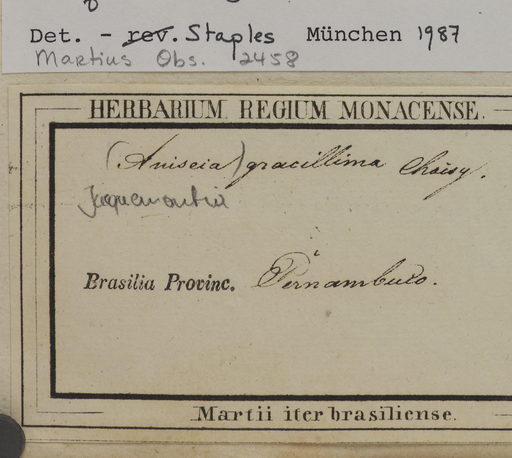 Det. – rev. Staples München 1987
Martius Obs. 2458
HERBARIUM REGIUM MONACENSE.
(Aniseia) gracillima Choisy.
Jaquemontia
Brasilia Provinc. Pernambuco.
Martii iter brasiliense.